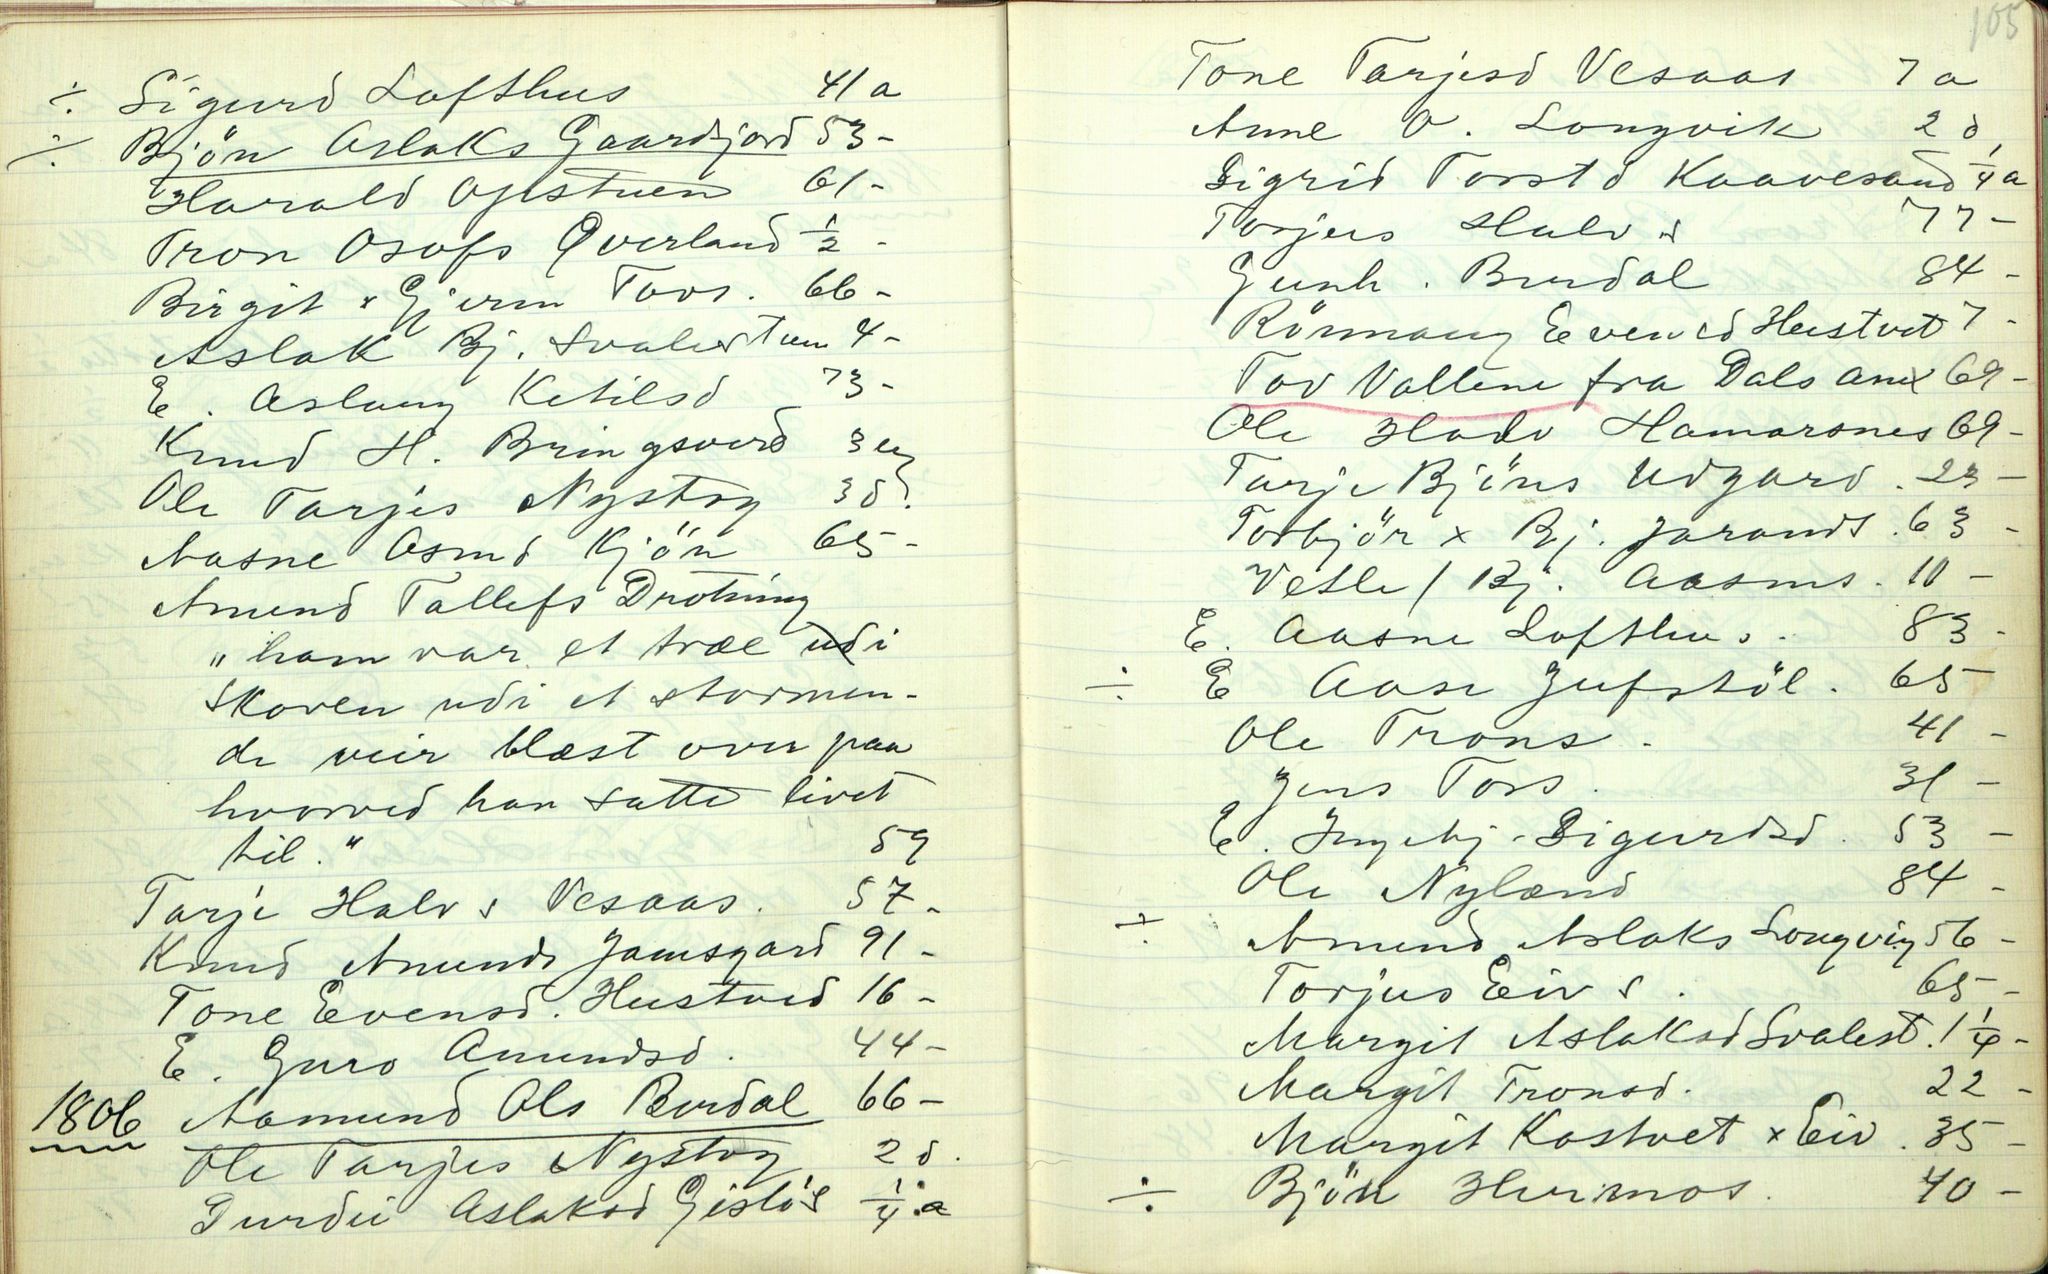 ÷ Sigurd Lofthus 41 a
÷ Bjön Aslaks Gaardsjord 53 -
Harald Ofstuen 61 -
Tron Osofs Överland 1/2 -
Birgit x Gjerm Tovs. 66 -
Aslak Bj. Svalestuen 4 -
E. Aslaug Ketilsd 73 -
Knud H. Bringsverd 3 ug
Ole Tarjes Nystog 3 d.
Aasne Asmd Kjön 65 -
Amund Tallefs Drotning
"ham var et træ udi
skoven udi et stormen-
de veir blæst over paa
hvorved han satte livet
til." 59
Tarje Halvs Vesaas. 57 -
Knud Amunds Jamsgard 91 -
Tone Evensd. Hustved 16 -
E. Guro Amundsd. 44 -
1806 Aamund Ols Burdal 66 -
Ole Tarjes Nystog 2 d.
Durdei Aslaksd Gistöl 1/4 a
105
Tone Tarjesd Vesaas 7 a
Anne O. Longvik 2 d
Sigrid Torstd Kaavesand 1/4 a
Torjus Halvs 77 -
Gunh. Burdal 84 -
Rönnaug Evensd Hustvet 7 -
Tov Vallene fra Dals Anex 69 -
Ole Hadv Hamarsnes 69 -
Tarje Bjöns Udgard. 23 -
Torbjör x Bj. Jarands. 63 -
Vetle / Bj. Aasms. 11 -
E. Aasne Lofthus. 83 -
÷ E Aase Jufstöl. 65
Ole Trons. 41 -
Jens Tors. 31 -
E. Ingebj. Sigurdsd. 53 -
Ole Nyland 84 -
÷ Amund Aslaks Longvig 56 -
Torjus Eivs. 65 -
Margit Aslaksd Svalest. 1 1/4 -
Margit Tronsd. 22 -
Margit Kostvet x Eiv. 35 -
÷ Bjön Hermos. 40 -